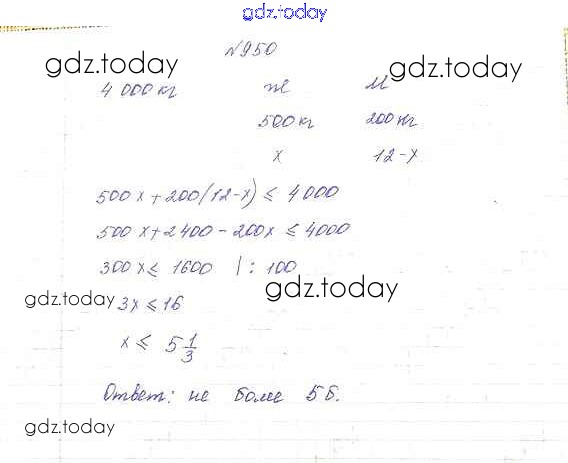 gdz.today
№950
gdz.today gdz.today
4 000 кг ж м
500 кг 200 кг
x 12-x
500x+200(12-x) ≤ 4000
500x+2400-200x ≤ 4000
300x ≤ 1600 | : 100
gdz.today
gdz.today 3x ≤ 16
x ≤ 5 1/3
Ответ: не более 5 б.
gdz.today